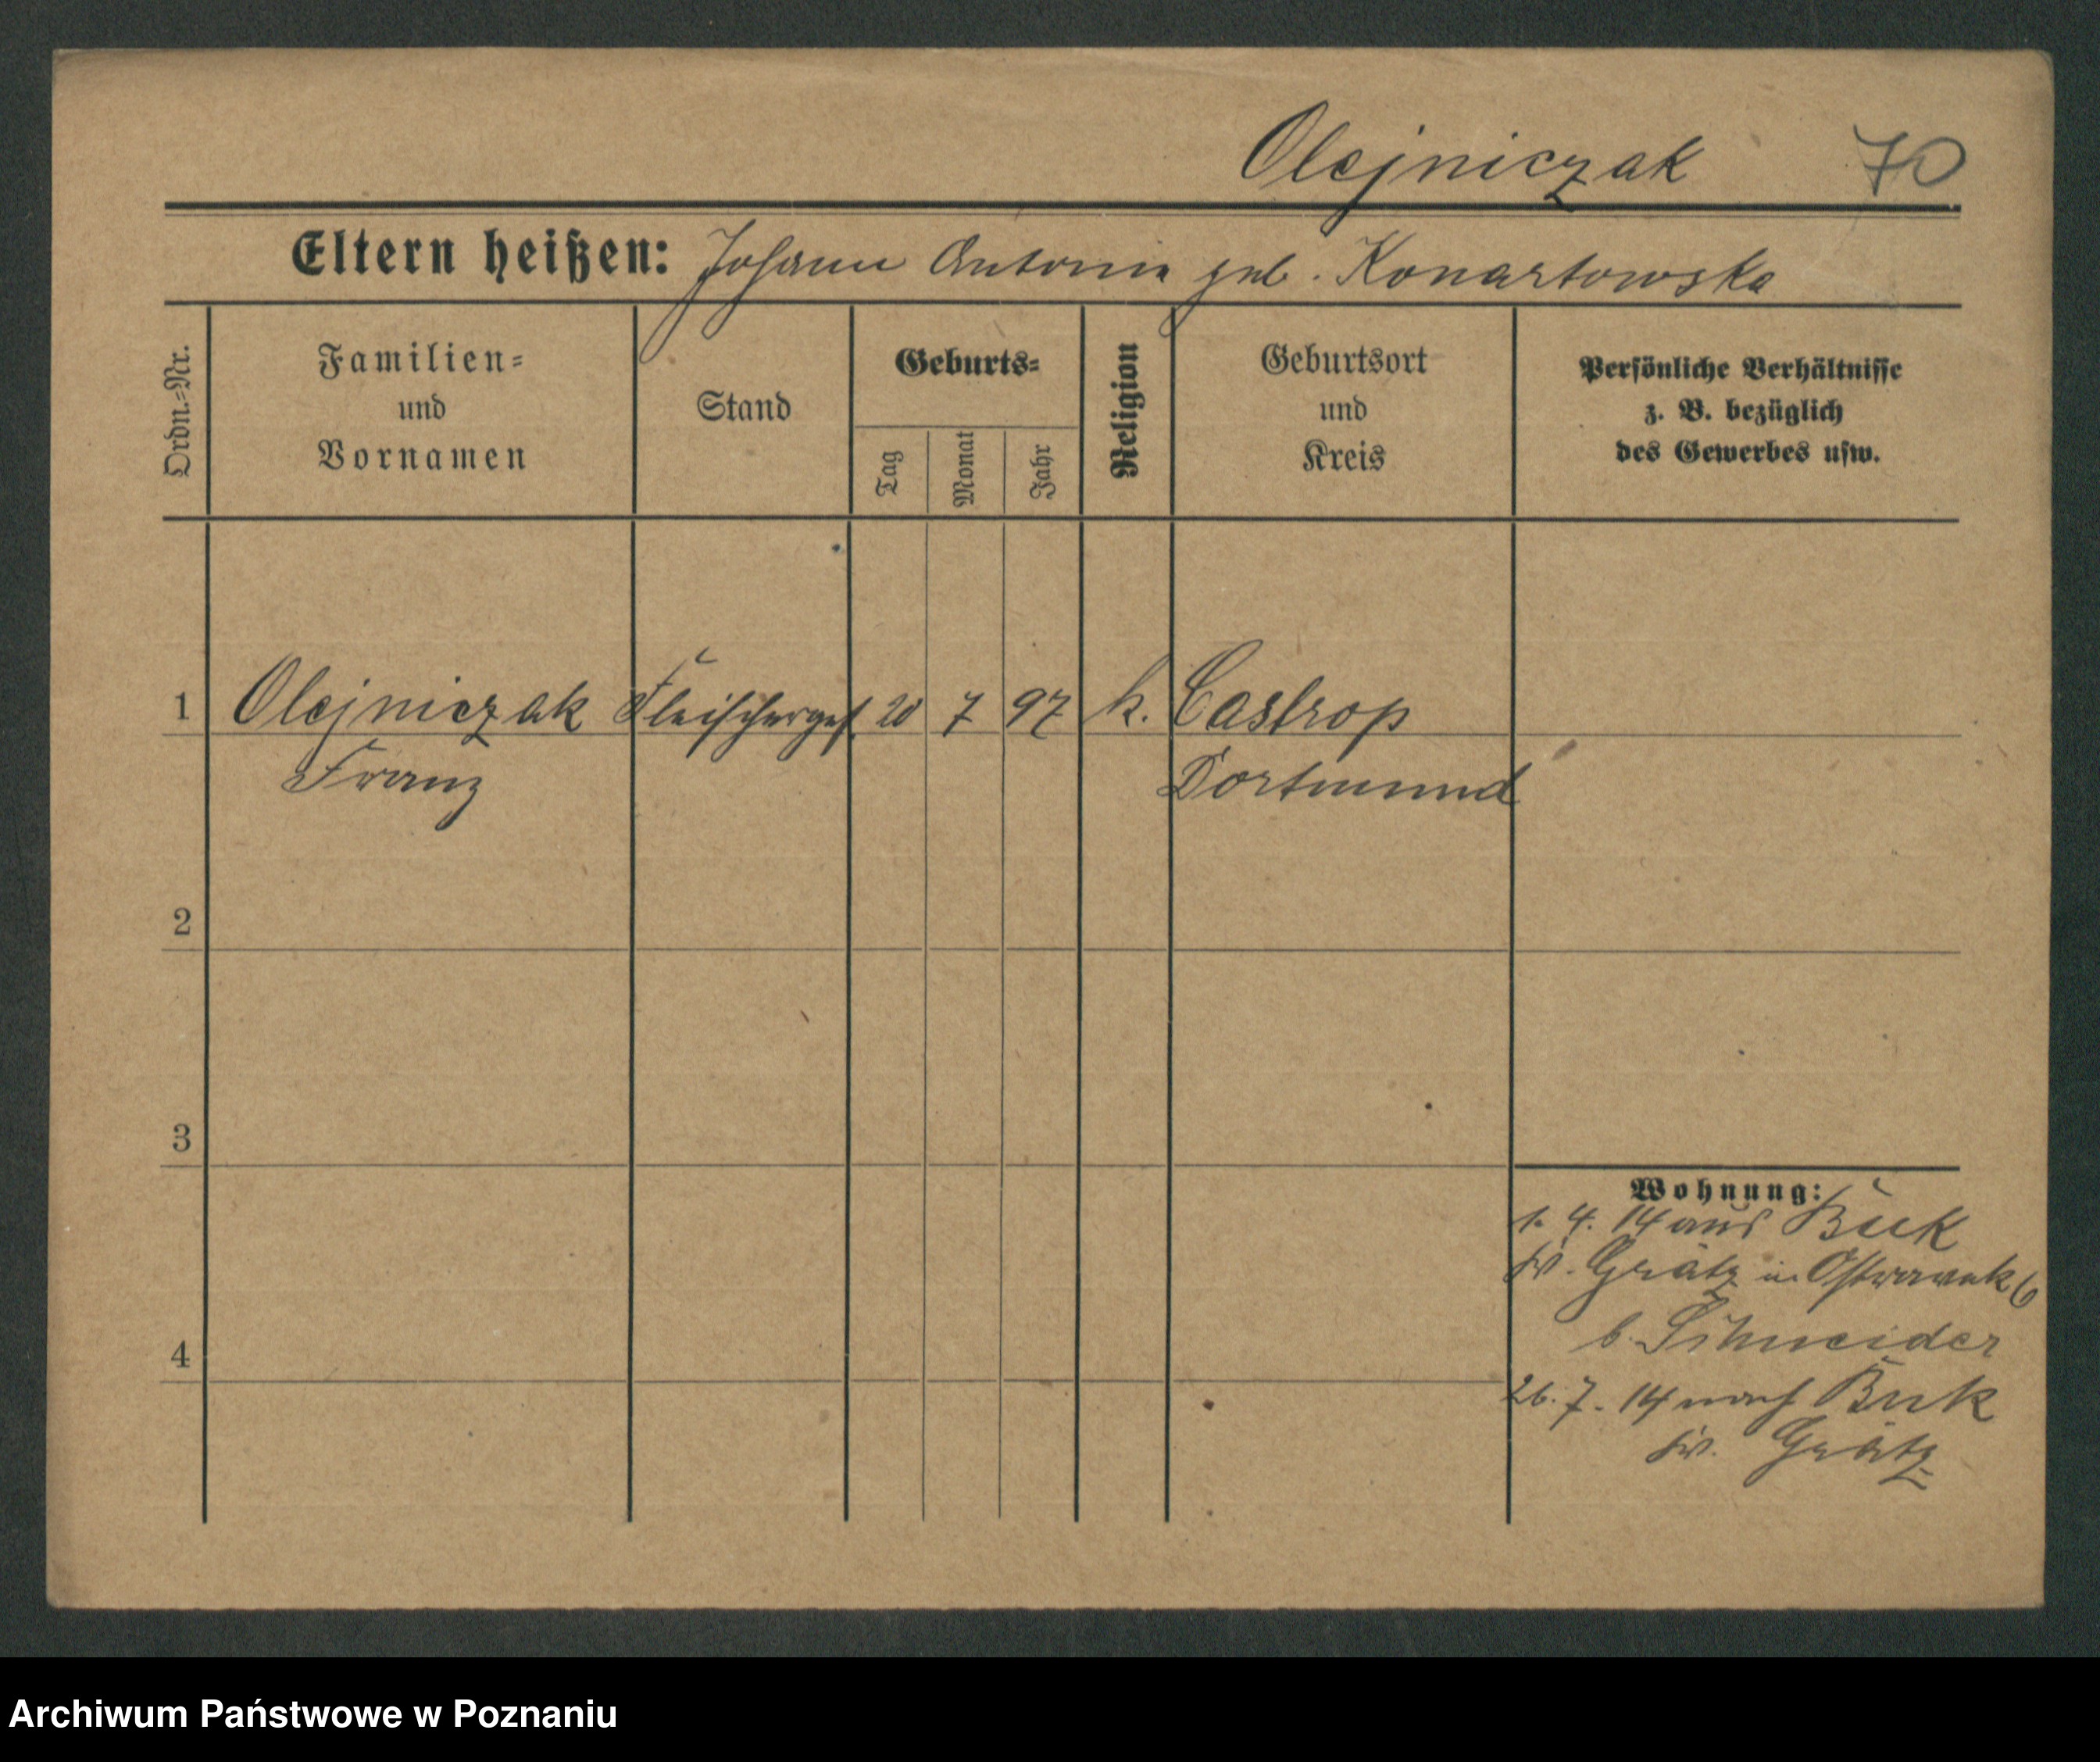 Olejniczak 70
Eltern heißen: Johann Antonie geb. Konartowska
Ordn.-Nr.
Familien-
und
Vornamen
Stand
Geburts-
Tag
Monat
Jahr
Religion
Geburtsort
und
Kreis
Persönliche Verhältnisse
z. B. bezüglich
des Gewerbes usw.
1 Olejniczak Fleischerges. 20 7 97 k. Castrop
Franz Dortmund
2
3
4
Wohnung:
1. 4. 14 aus Buk
Kr. Grätz in 6
b. Schneider
26. 7. 14 nach Buk
Kr. Grätz
Archiwum Państwowe w Poznaniu